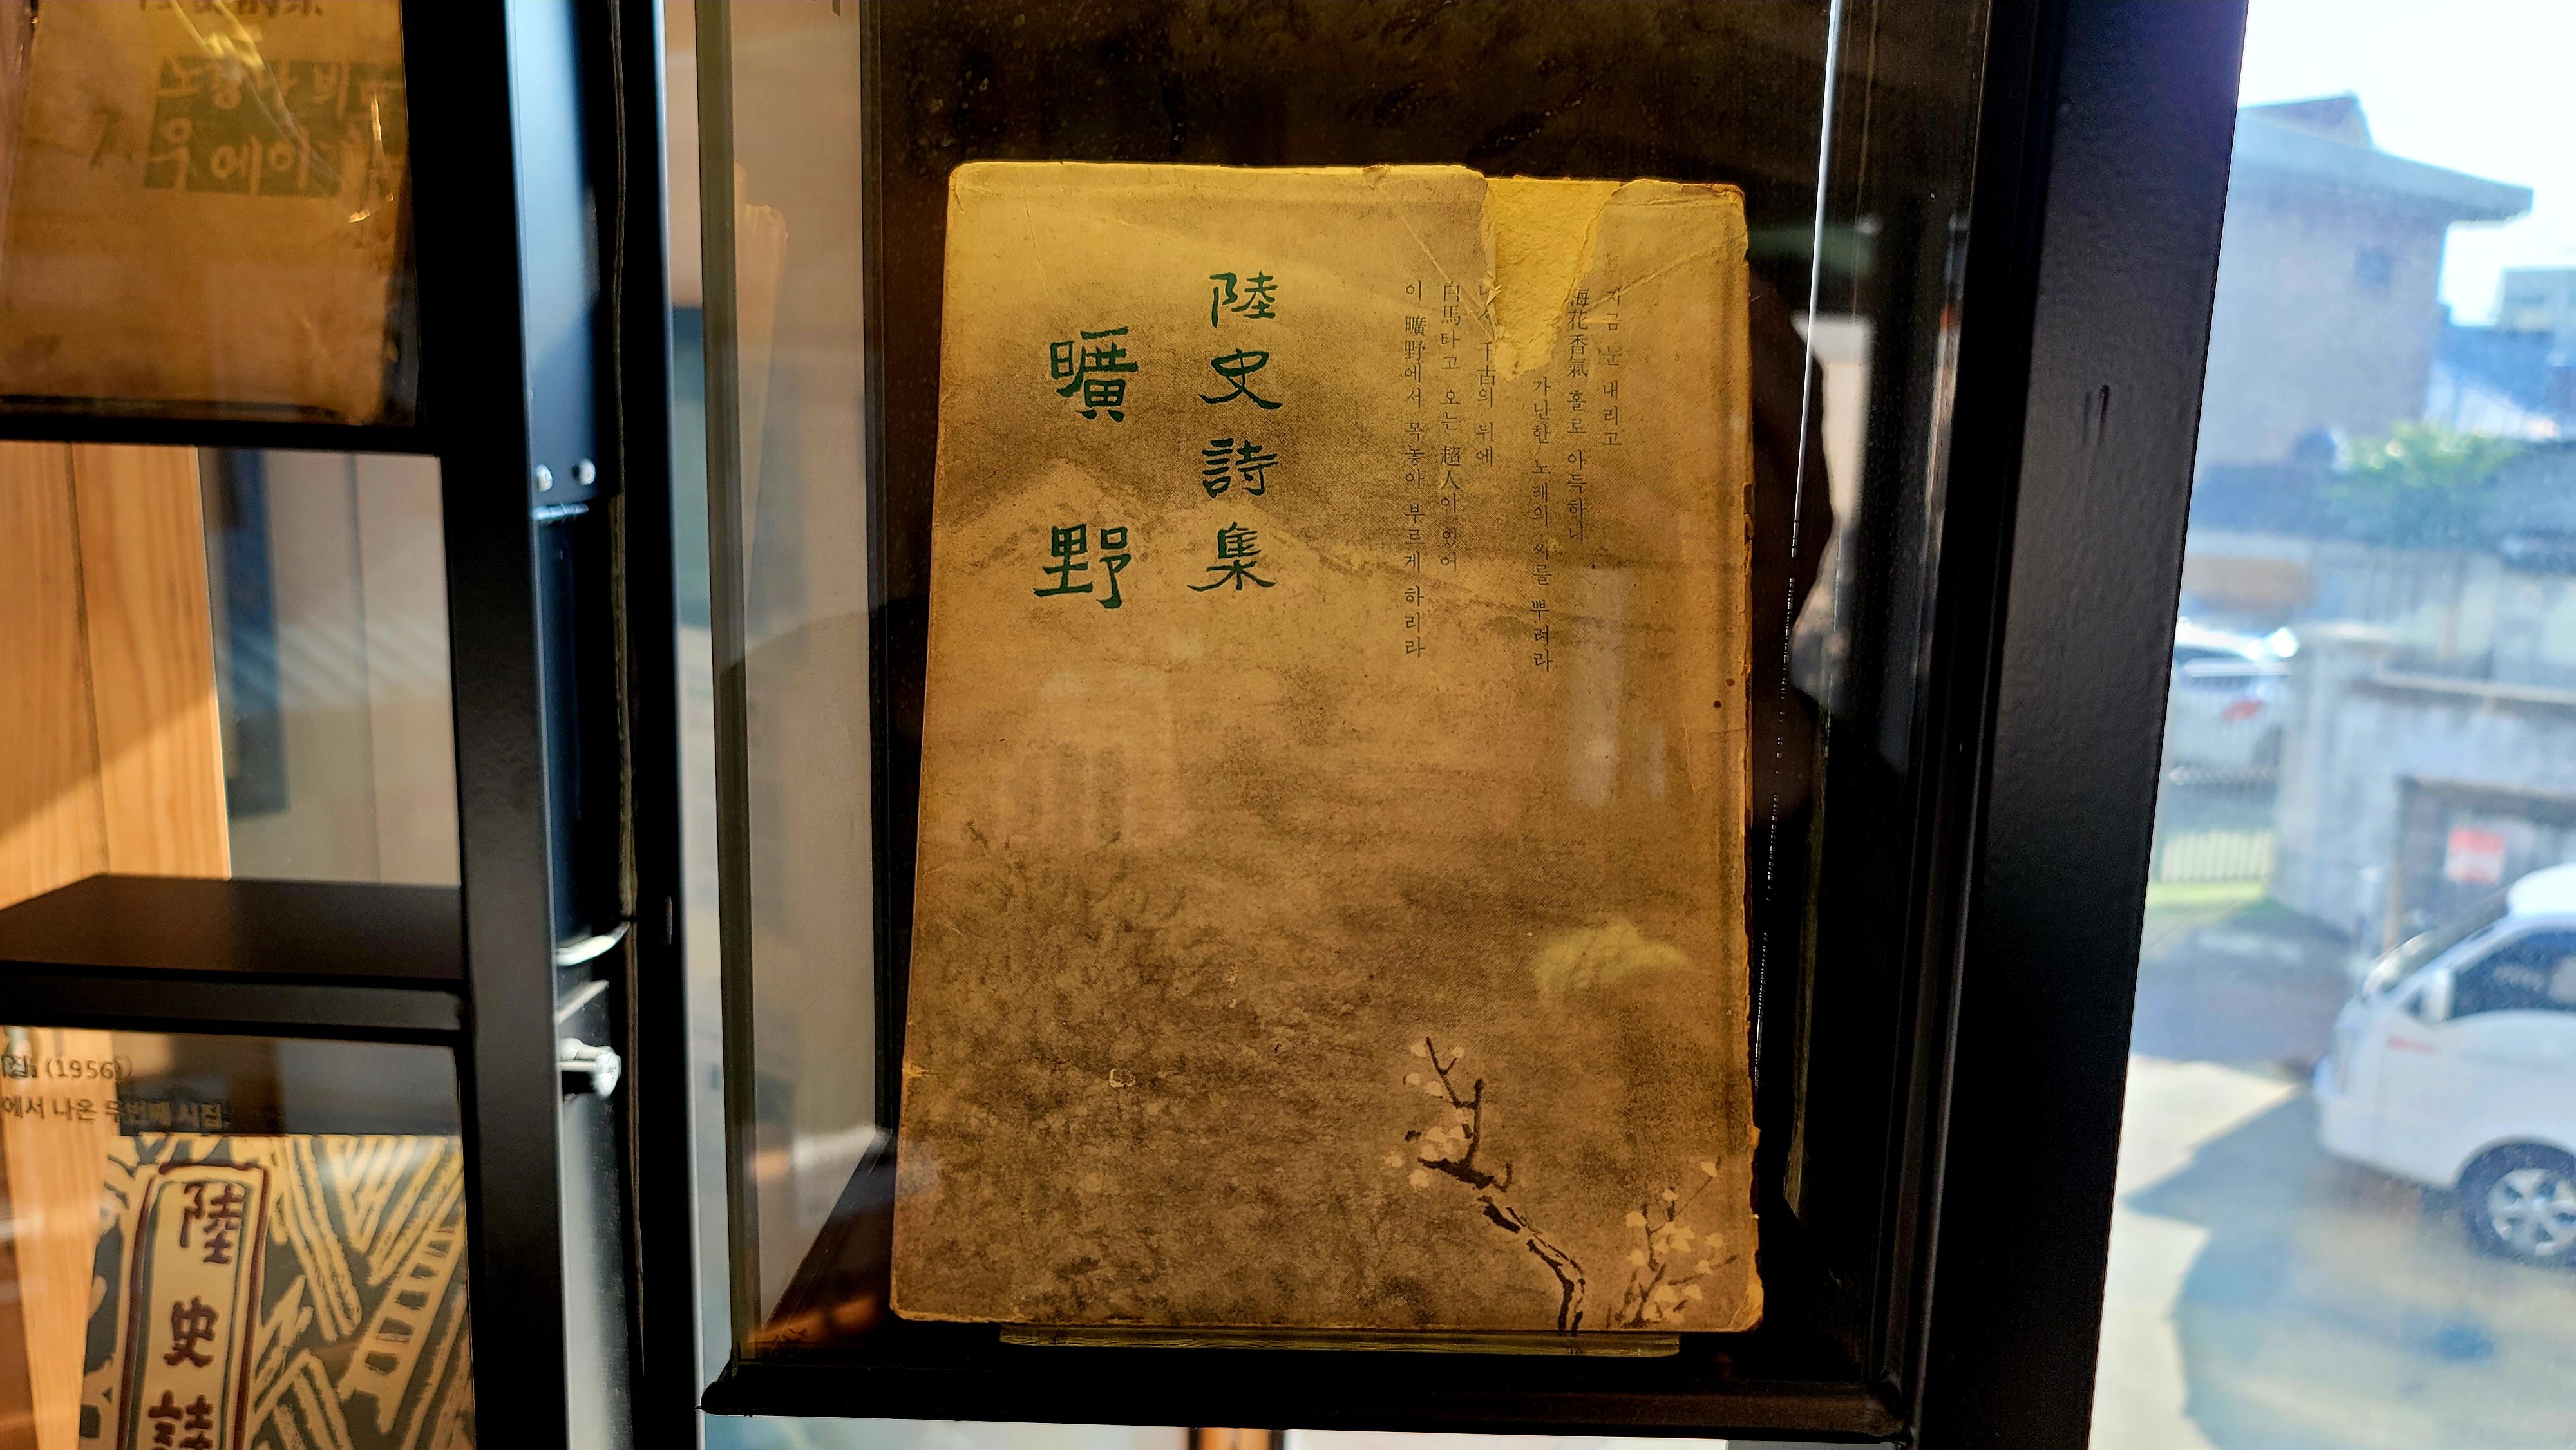 노랑나비
우에 이
(1956)
에서 나온 두번째 시집
陸史詩
지금 눈 내리고
梅花香氣 홀로 아득하니
가난한 노래의 씨를 뿌려라
千古의 뒤에
白馬타고 오는 超人이 있어
이 曠野에서 목놓아 부르게 하리라
陸史詩集
曠野